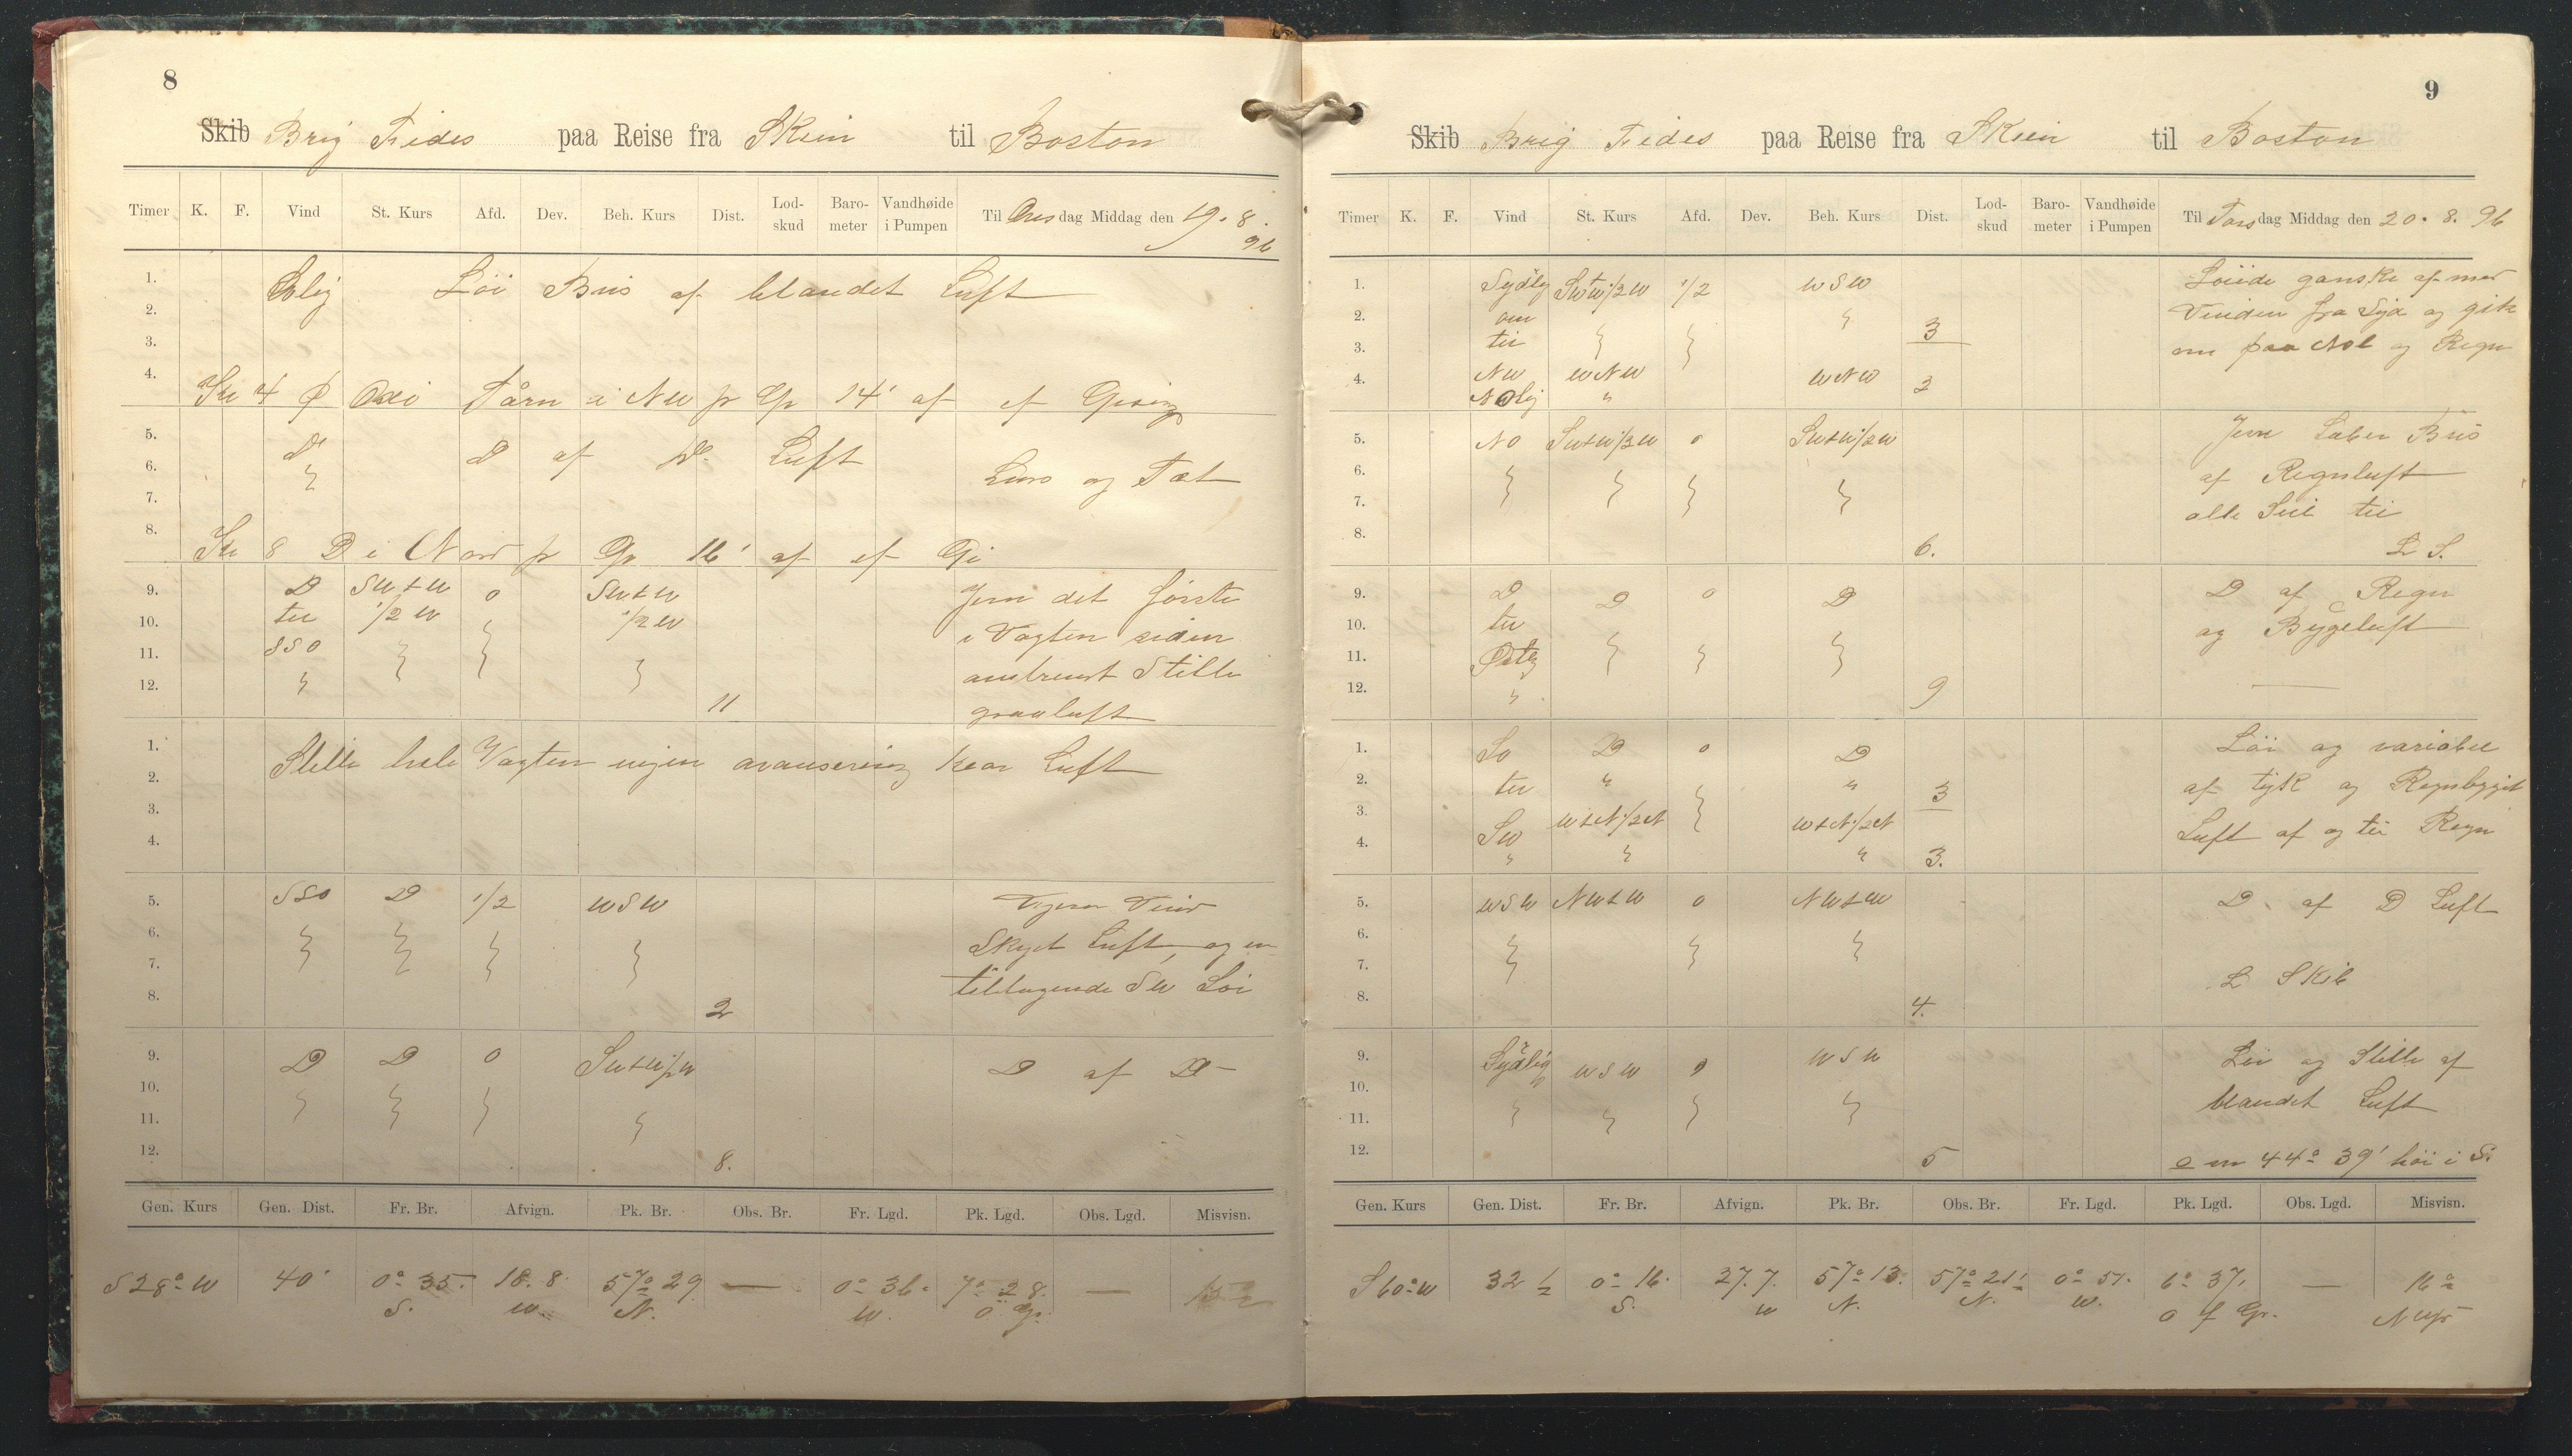 8
Skib Brig Fides paa Reise fra Skien til Boston
Timer K. F. Vind St. Kurs Afd. Dev. Beh. Kurs Dist. Lod-skud Baro-meter Vandhøide i Pumpen Til Onsdag Middag den 19. 8. 96
1. Löi Bris af blandet Luft
2.
3.
4. Kl 4 Tårn i NW p Gp 14' af ef Gisning
5. D D af D. Luft
6. Luft
7.
8. Kl 8 D i Nord p Gp 16' af ef Gi
9. D SWtW 0 SWtW Jevn det förste
10. til 1/2 W 1/2 W i Vagten siden
11. SSO Stille
12. 11 graaluft
1. Stille hele Vagten ingen avansering klar Luft
2.
3.
4.
5. SSO D 1/2 WSW
6. Skyet Luft og en
7. tiltagende SW Löi
8. 2
9. D D 0 SWtW1/2W D af D
10.
11.
12. 8.
Gen. Kurs Gen. Dist. Fr. Br. Afvign. Pk. Br. Obs. Br. Fr. Lgd. Pk. Lgd. Obs. Lgd. Misvisn.
S 28° W 40' 0° 35. 18. 8. 57° 29 — 0° 36. 7° 28. —
S. W. N. W. O. Gr.
9
Skib Brig Fides paa Reise fra Skien til Boston
Timer K. F. Vind St. Kurs Afd. Dev. Beh. Kurs Dist. Lod-skud Baro-meter Vandhøide i Pumpen Til Torsdag Middag den 20. 8. 96
1. Sydlig SWtW1/2W 1/2 WSW Löiede ganske af med
2. om Vinden fra Syd og gik
3. til 3 om paa Nol og Regn
4. NW WNW WNW 3
Nolig "
5. NO SWtW1/2W 0 SWtW1/2W Jevn Laber Bris
6. af Regnluft
7. alle Seil til
8. 6. L S.
9. D D 0 D D af Regn
10. til og Bygeluft
11. Østlig
12. " 9
1. SO D 0 D Löi og variabel
2. til " " 3 af tyk og Regnbyget
3. WtN1/2N WtN1/2N Luft af og til Regn
4. SW 3.
5. WSW NWtW 0 NWtW D. af D Luft
6.
7. L Skib
8. 4.
9. Sydlig WSW 0 WSW Löi og Stille af
10. blandet Luft
11.
12. 5 44° 39' höi i S.
Gen. Kurs Gen. Dist. Fr. Br. Afvign. Pk. Br. Obs. Br. Fr. Lgd. Pk. Lgd. Obs. Lgd. Misvisn.
S 60° W 32 1/2 0° 16. 27. 7. 57° 13. 57° 21' 0° 51. 6° 37. — 16°
S. W N. N. W. O f Gr.